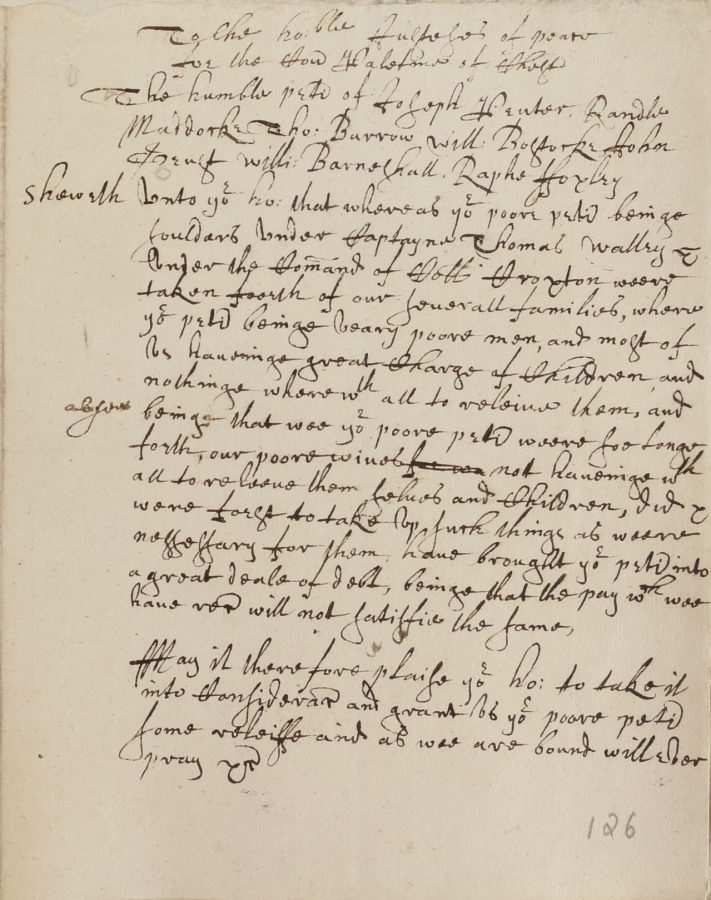 To the ho:ble Justeses of peace
for the Cou Paletine of Chest
The humble petd of Joseph Venter, Randle
Maddocke Tho: Barrow will: Bostocke John
will: Barneshall. Raphe Foxley
Sheweth Unto yor ho: that whereas yor poore petd beinge
souldars Under Captayne Thomas Walley
Under the Comand of Coll: Croxton weere
taken foorth of our severall families, where
yor petd beinge veary poore men, and most of
Us haveinge great Charge of Children and
nothinge wherewth all to releive them, and
absent beinge that wee yor poore petd weere soe longe
forth, our poore wives not haveinge wth
all to releeve them selves and Children, did
were forst to take Up such things as weere
nessessary for them, have brought yor petd into
a great deale of debt, beinge that the pay wch wee
have recd will not satisfie the same,
May it therefore plaise yor ho: to take it
into Consideracn and grant Us yor poore petd
some releiffe and as wee are bound will Ever
pray &c
126